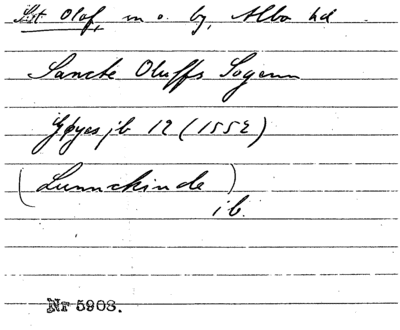 S:t Olof, m o. by, Albo hd
Sancte Oluffs Sogenn
Gøyes jb 12 (1552)
(Lunnckinde)
ib.
Nr 5908.